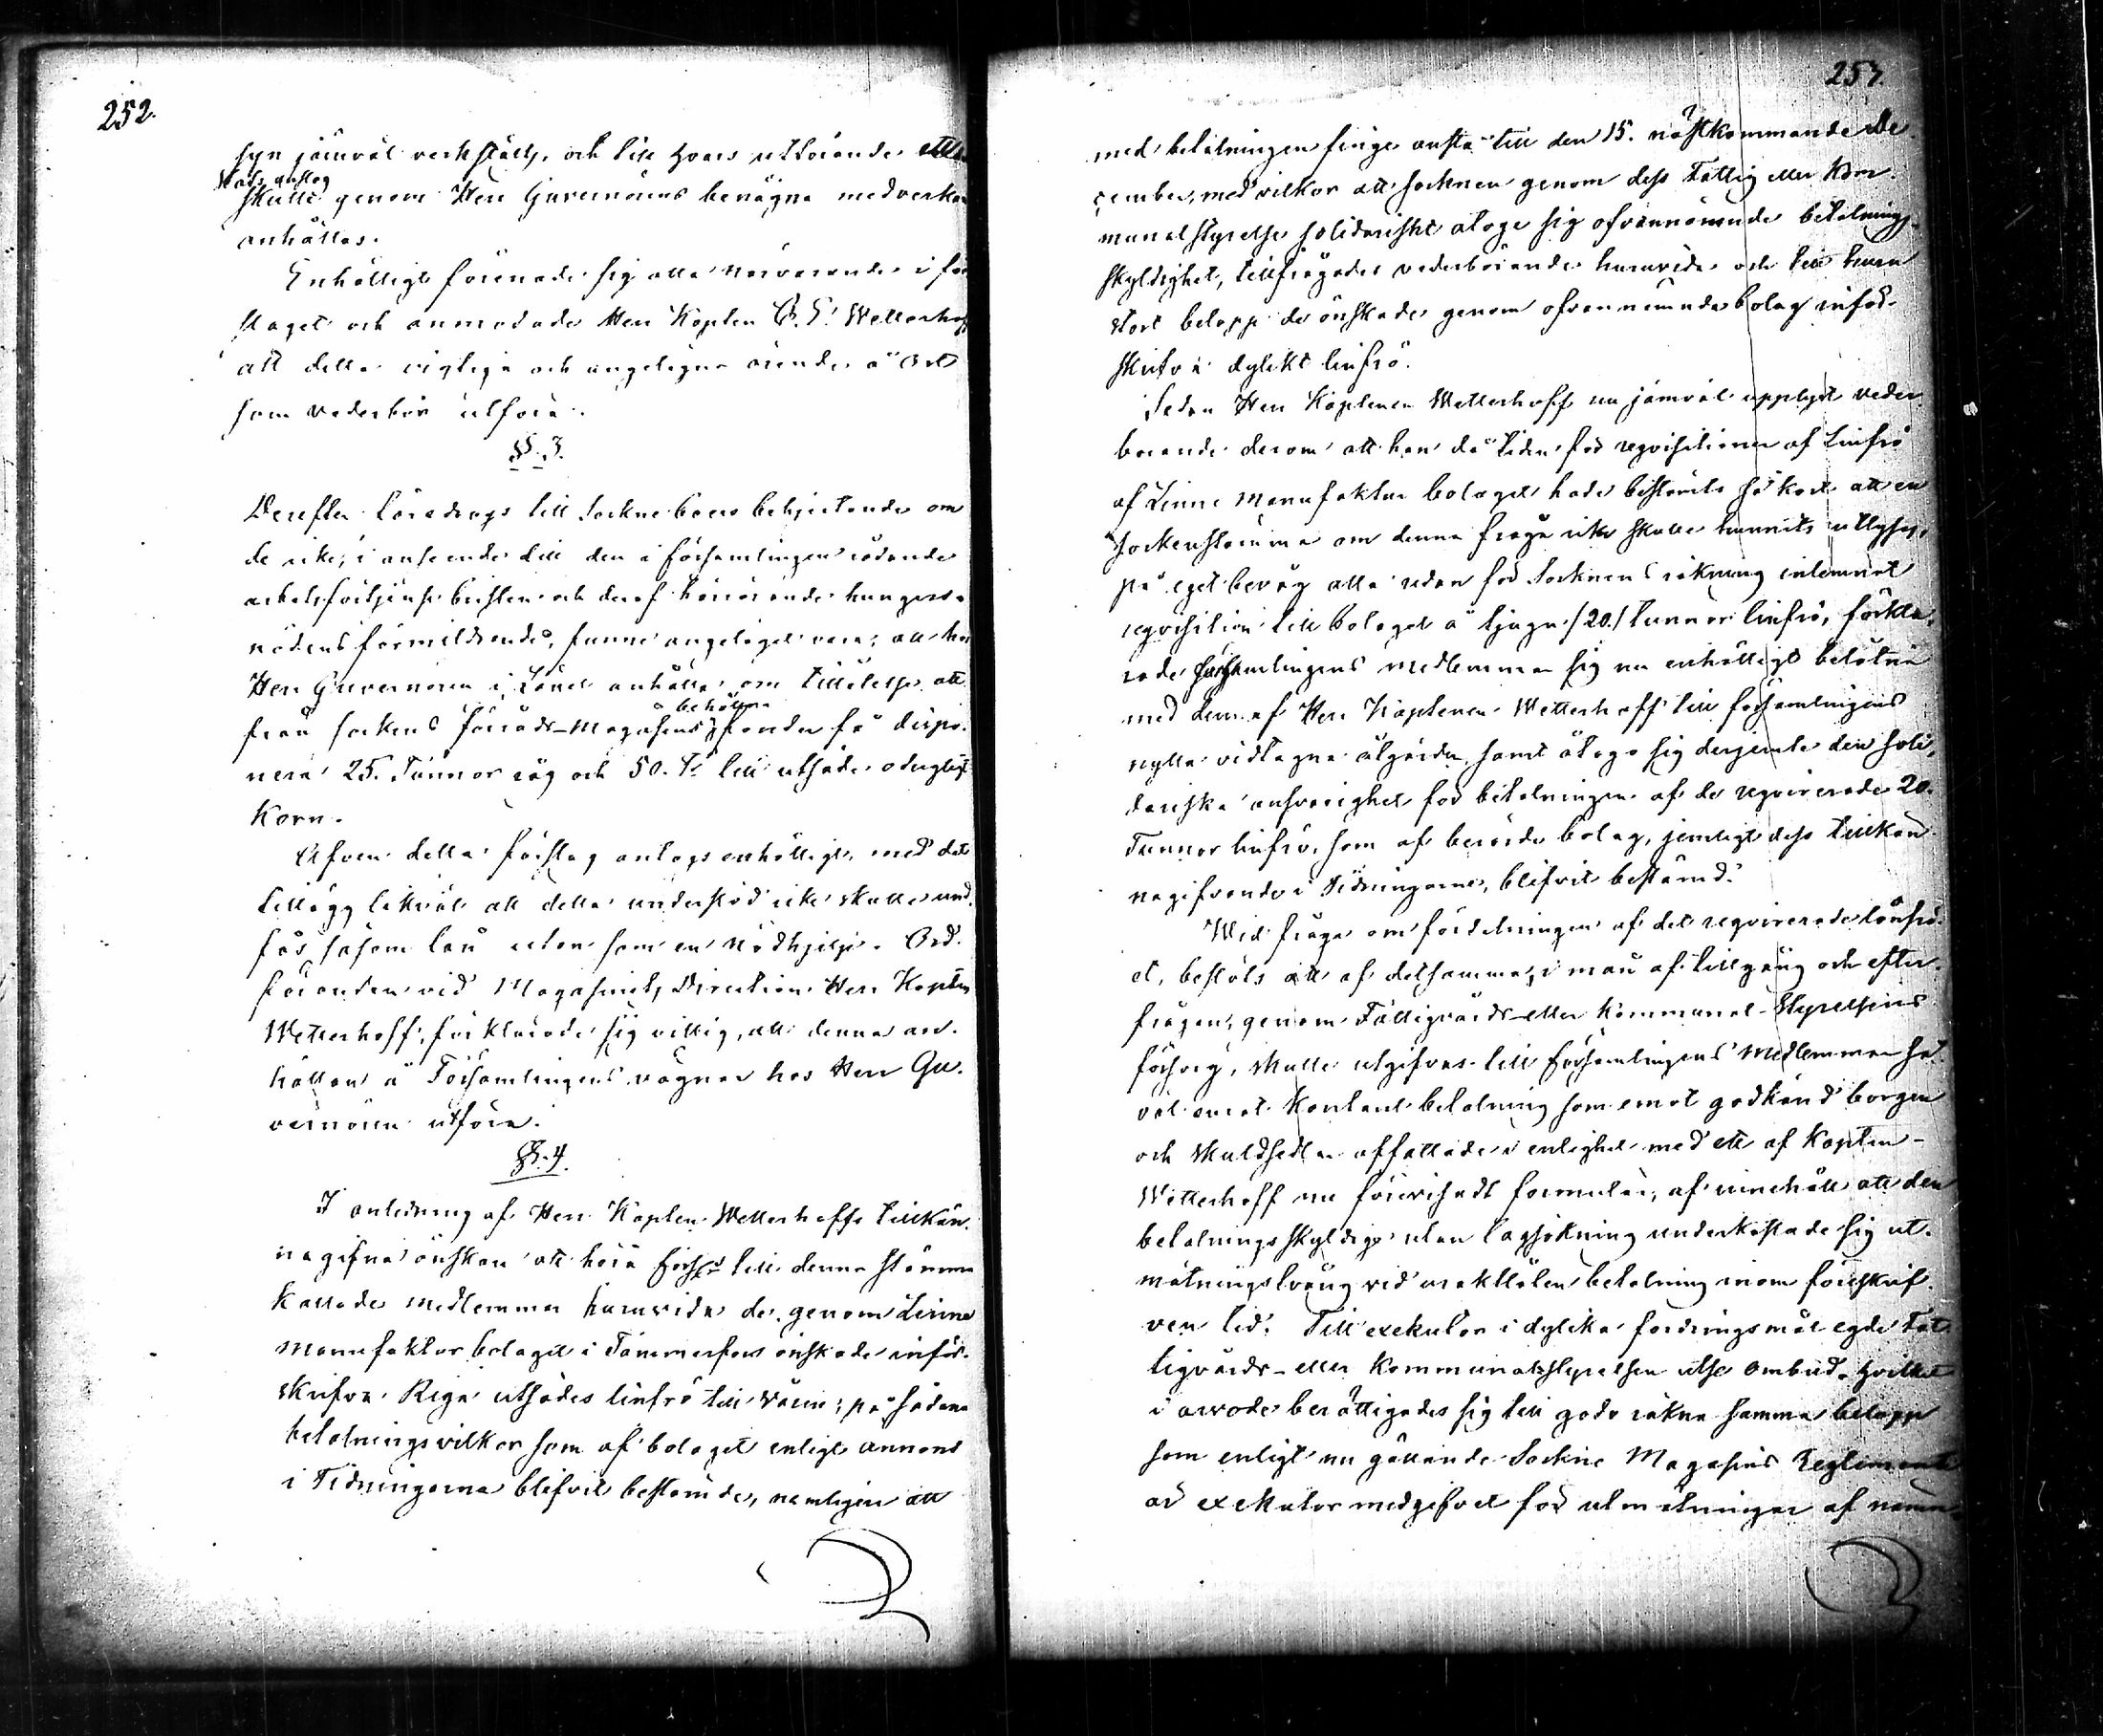 252.
syn jämväl verkställts, och till hvars utförande ett
Stats anslag
skulle genom Herr Guvernörens benägna medverkan
anhållas.
Enhälligt förenade sig alla närvarande i för
slaget och anmodade Herr Kapten G. E. Wetterhoff
att detta vigtiga och angelägna ärende å Ort
som vederbör utföra.
§. 3.
Derefter föredrogs till Sockneboers behjertande om
de icke, i anseende till den i församlingen rådande
arbetsförtjenst bristen och deraf härrörande hungers-
nödens förmildrande, funne angeläget vara, att hos
Herr Guvernören i Länet anhålla om tillåtelse att
behållna
från sockens förråds-Magasins fonder få dispo-
nera 25. Tunnor råg och 50. Tr till utsäde odugligt
Korn.
Äfven detta förslag antogs enhälligt, med det
tillägg likväl att detta understöd icke skulle und-
fås såsom lån utan som en nödhjelp. Ord-
föranden vid Magasinets Direktion Herr Kapten
Wetterhoff, förklarade sig villig, att denna an-
hållan å Församlingens vägnar hos Herr Gu-
vernören utföra.
§. 4.
I anledning af Herr Kapten Wetterhoffs tillkän-
nagifna önskan att höra förs:s till denna stämma
kallade medlemmar huruvida de genom Linne
manufaktur bolaget i Tammerfors önskade inför-
skrifva Riga utsädes linfrö till våren; på sådana
betalningsvilkor som af bolaget enligt annons
i Tidningarna blifvit bestämde, nemligen att
253.
med betalningen finge anstå till den 15. nästkommande De-
cember, med vilkor att socknen genom dess Fattig eller Kom-
munalstyrelse solidariskt åtoge sig ofvannämnde betalnings-
skyldighet, tillfrågades vederbörande huruvida och till huru
stort belopp de önskade genom ofvannämnda bolag inför-
skrifva dylikt linfrö.
Sedan Herr Kaptenen Wetterhoff nu jämväl upplyst veder-
börande derom att han då tiden för reqvisitioner af Linfrö
af Linne Manufaktur bolaget hade bestämts så kort att en
Sockenstämma om denna fråga icke skulle hunnits utlysas,
på eget bevåg allaredan för Socknens räkning inlemnat
reqvisition till bolaget å tjugu /20./ tunnor linfrö, förkla-
rade församlingens medlemmar sig nu enhälligt belåtna
med den af Herr Kaptenen Wetterhoff till församlingens
nytta vidtagna åtgärden, samt åtogo sig derjemte den soli-
dariska ansvarighet för betalningen af de reqvirerade 20.
Tunnor linfrö, som af berörde bolag, jemligt dess tillkän-
nagifvande i Tidningarne, blifvit bestämd.
Wid fråga om fördelningen af det reqvirerade linfrö-
et, beslöts att af detsamma, i mån af tillgång och efter-
frågan, genom Fattigvårds- eller Kommunal-Styrelsens
försorg, skulle utgifvas till församlingens medlemmar så-
väl emot Kontant betalning som emot godkänd borgen
och skuldsedlar affattade i enlighet med ett af Kapten
Wetterhoff nu förevisadt formulär, af innehåll att den
betalningsskyldige utan lagsökning underkastade sig ut-
mätningstvång vid uraktlåten betalning inom föreskrif-
ven tid. Till exekutor i dylika fordringsmål egde Fat-
tigvårds- eller Kommunalstyrelsen utse ombud, hvilket
i arvode berättigades sig till godo räkna samma belopp
som enligt nu gällande Sockne Magasins Reglemente
är exekutor medgifvet för utmätningar af namn-